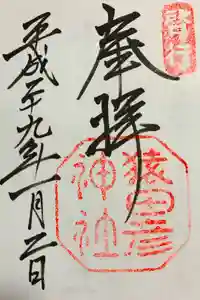 奉拝
猿田彦
神社
平成二十九年一月二日